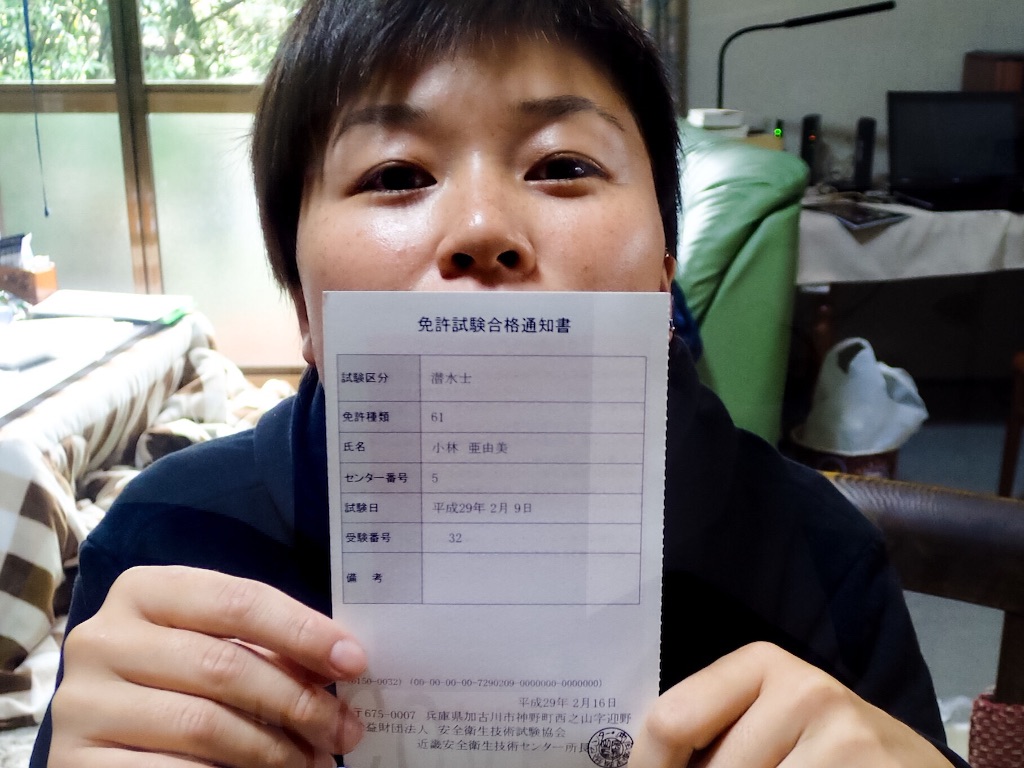 免許試験合格通知書
試験区分 潜水士
免許種類 61
氏名 小林 亜由美
センター番号 5
試験日 平成29年 2月 9日
受験番号 32
備 考
0150-0032) (00-00-00-00-7290209-0000000-0000000)
平成29年 2月16日
〒675-0007 兵庫県加古川市神野町西之山字迎野
益財団法人 安全衛生技術試験協会
近畿安全衛生技術センター所長